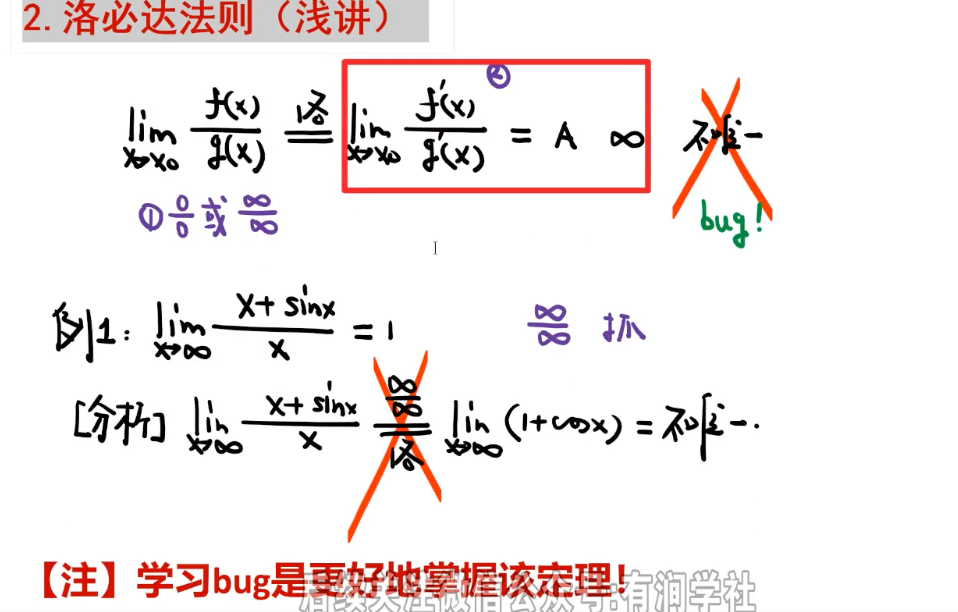 2.洛必达法则（浅讲）
lim x→x₀ f(x)/g(x) 洛= lim x→x₀ f'(x)/g'(x) = A ∞ 不唯一
②
① 0/0 或 ∞/∞
bug!
例1: lim x→∞ (x+sinx)/x = 1 ∞/∞ 抓
[分析] lim x→∞ (x+sinx)/x ∞/∞ 洛= lim x→∞ (1+cosx) = 不唯一.
【注】学习bug是更好地掌握该定理!
后续关注微信公众号:有润学社